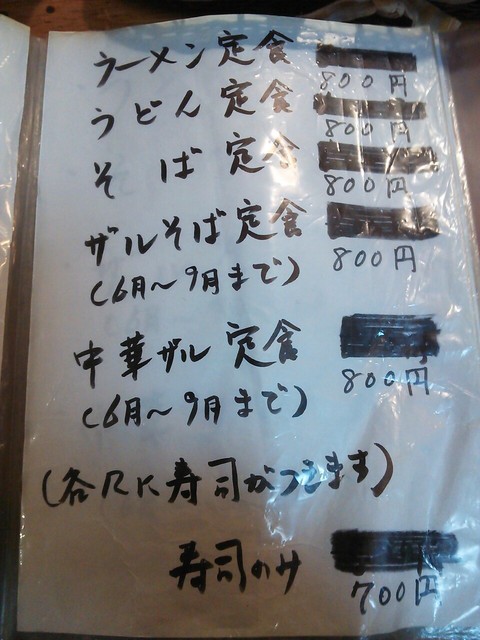 ラーメン定食 800円
うどん定食 800円
そば定食 800円
ザルそば定食 800円
(6月〜9月まで)
中華ザル定食 800円
(6月〜9月まで)
(各 寿司がつきます)
寿司のみ 700円